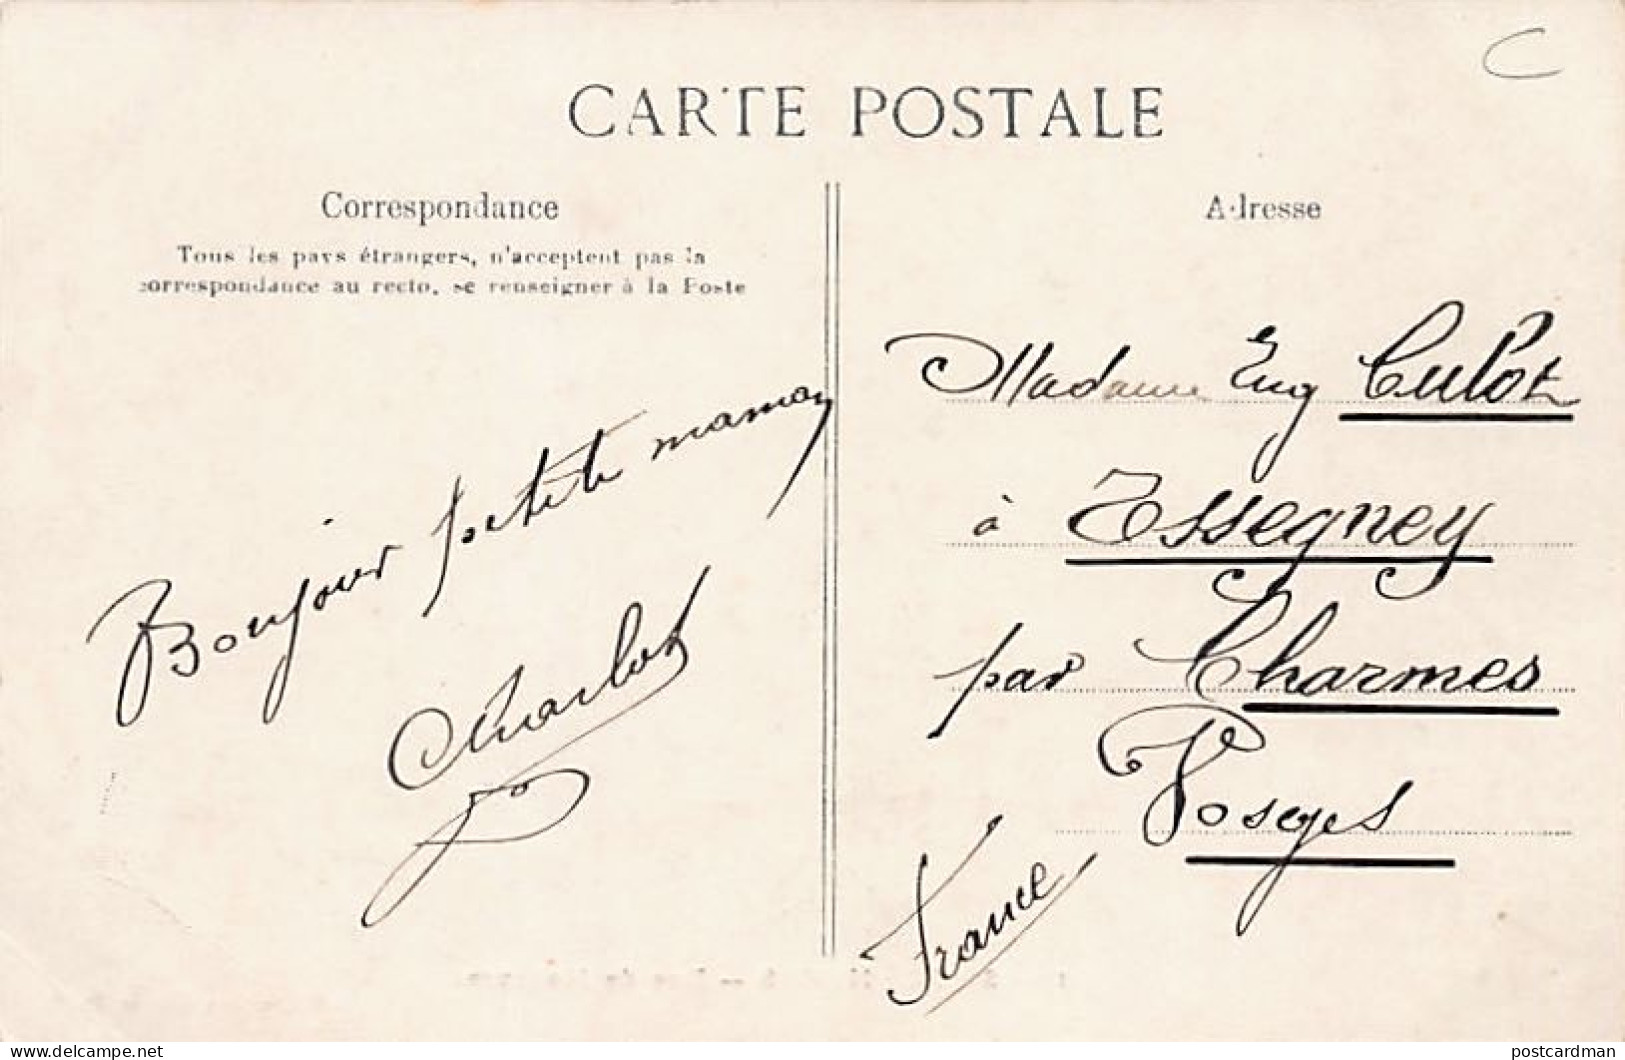 C
CARTE POSTALE
Correspondance
Tous les pays étrangers, n'acceptent pas la
correspondance au recto, se renseigner à la Poste
Bonjour petite maman
Charlot
Adresse
Madame Eug Culot
à Essegney
par Charmes
Vosges
France
delcampe.net
postcardman